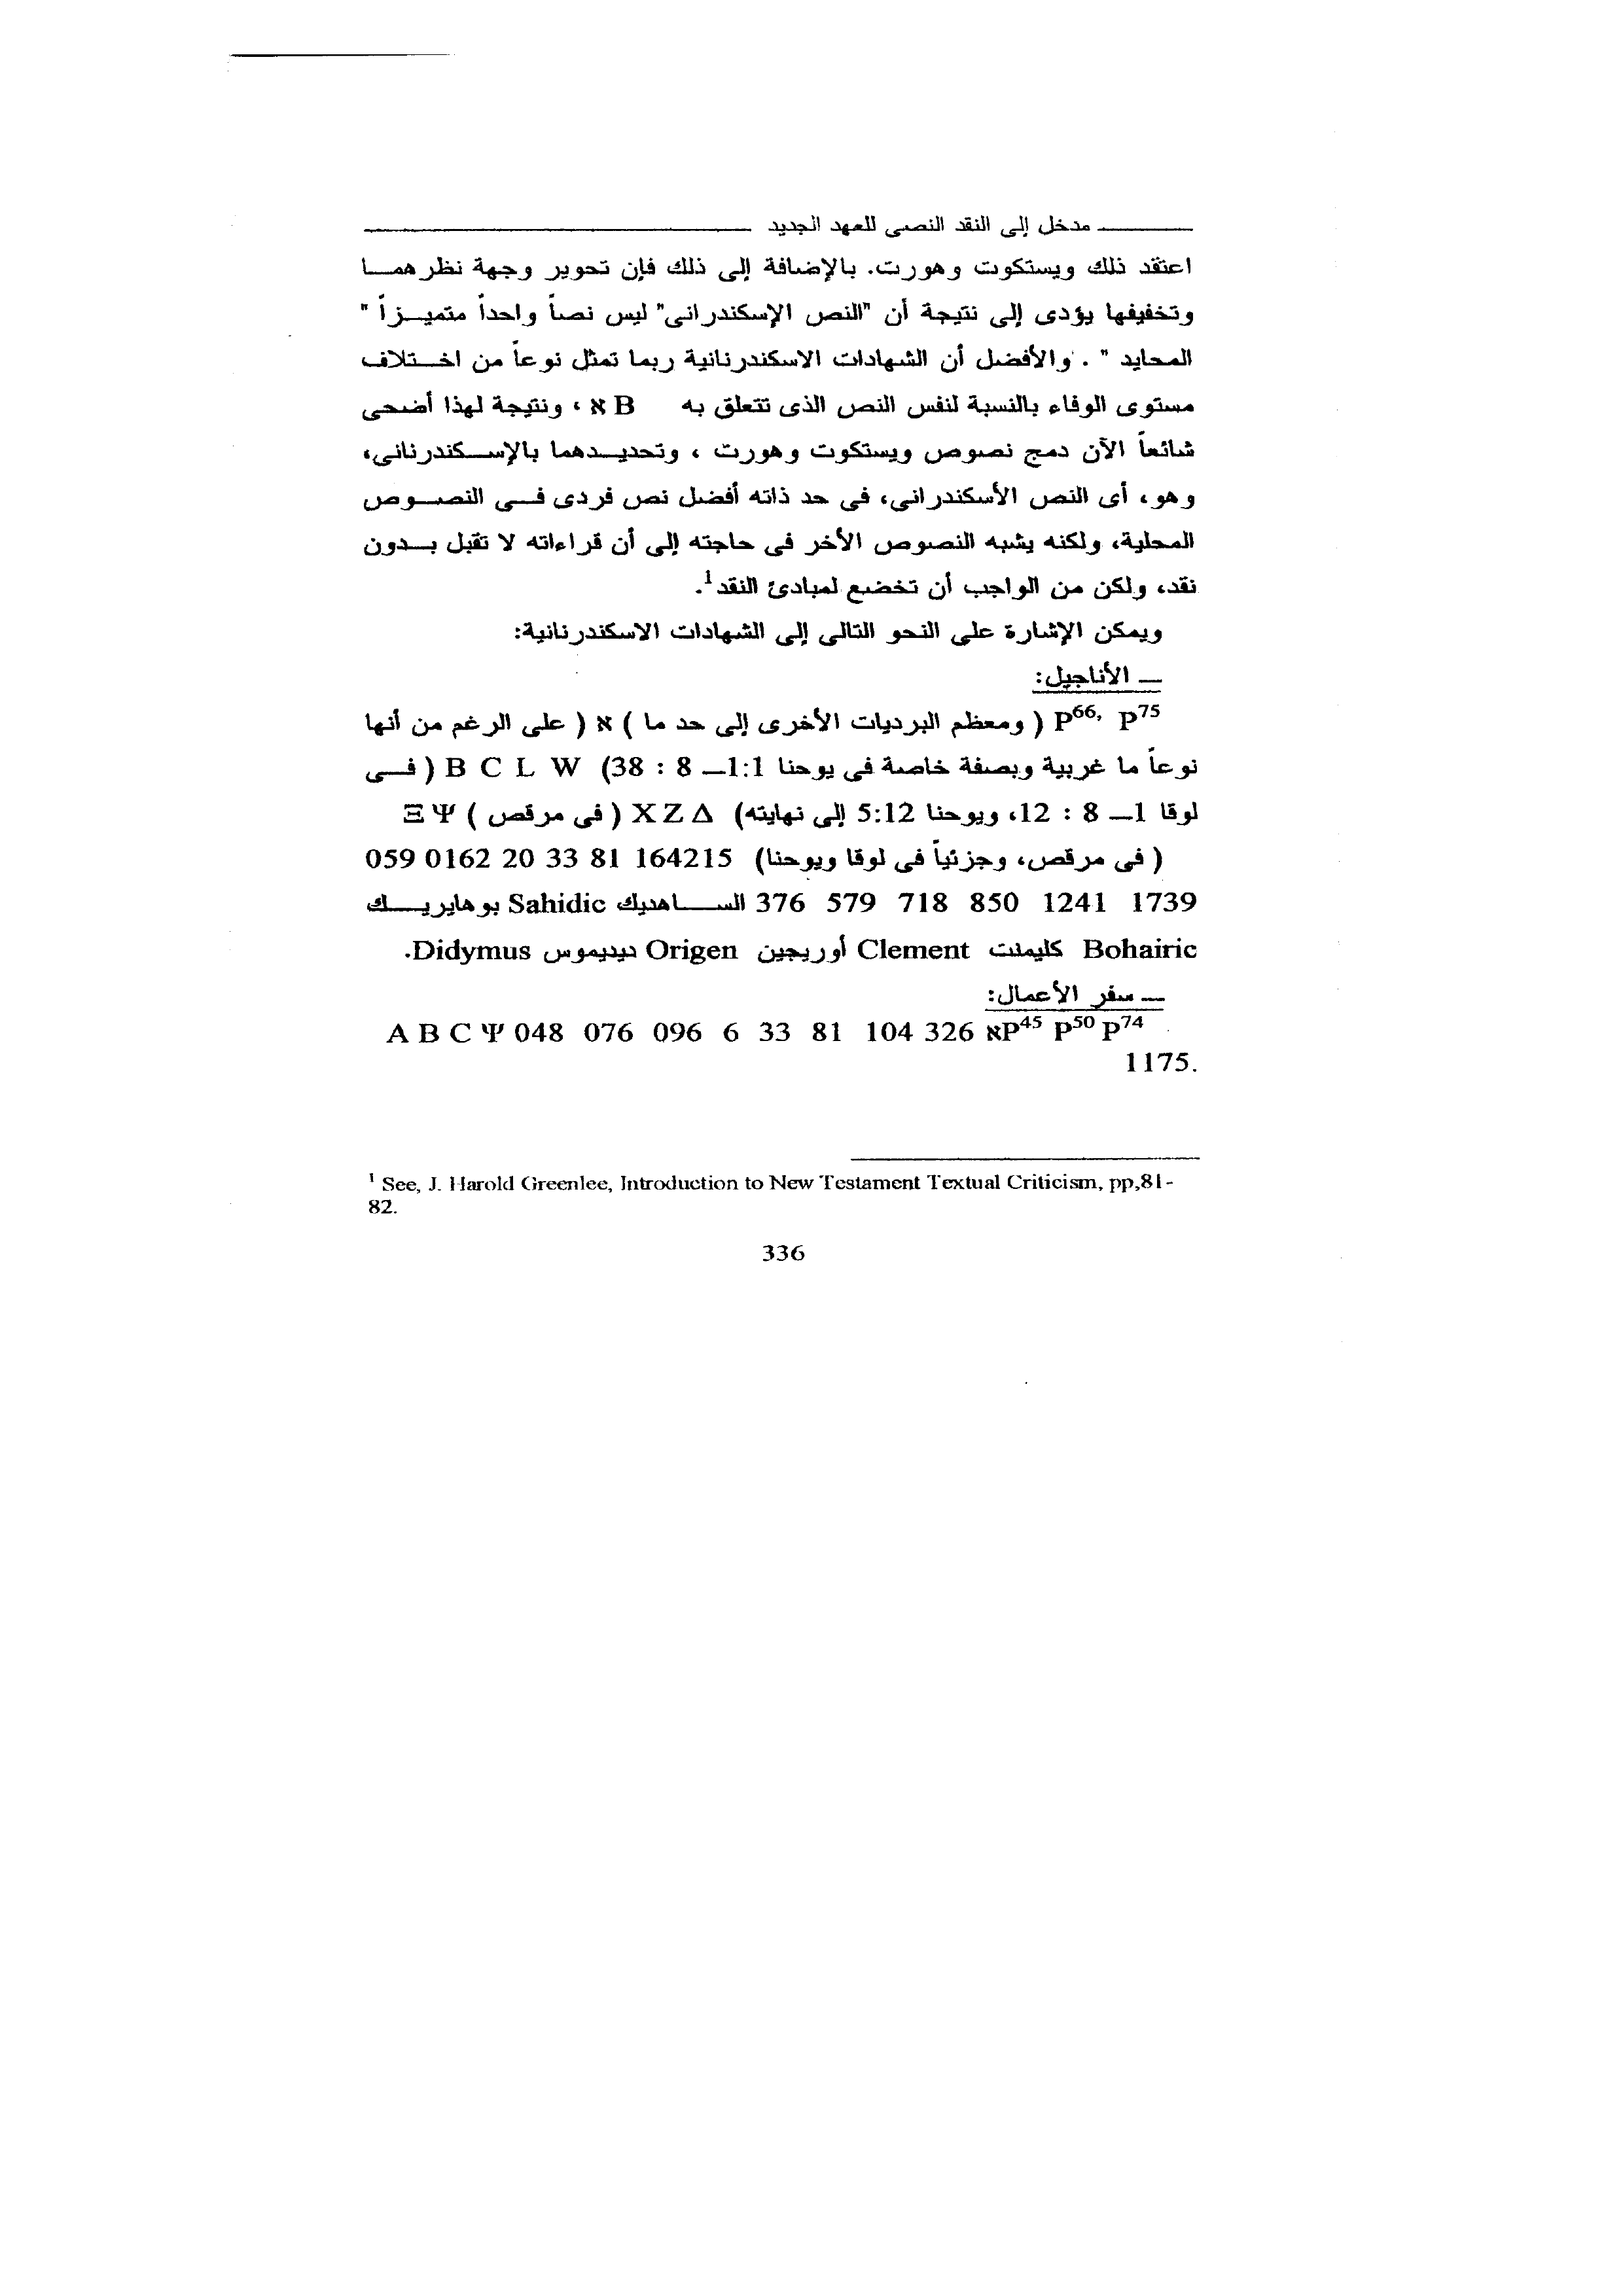 مدخل إلى النقد النصى للعهد الجديد
اعتقد ذلك ويستكوت وهورت. بالإضافة إلى ذلك فإن تحوير وجهة نظرهما
وتخفيفها يؤدى إلى نتيجة أن "النص الإسكندرانى" ليس نصاً واحداً متميزاً "
المحايد " . والأفضل أن الشهادات الاسكندرنانية ربما تمثل نوعاً من اختلاف
مستوى الوفاء بالنسبة لنفس النص الذى تتعلق به א B ، ونتيجة لهذا أضحى
شائعاً الآن دمج نصوص ويستكوت وهورت ، وتحديدهما بالإسكندرنانى،
وهو، أى النص الأسكندرانى، فى حد ذاته أفضل نص فردى فى النصوص
المحلية، ولكنه يشبه النصوص الأخر فى حاجته إلى أن قراءاته لا تقبل بدون
نقد، ولكن من الواجب أن تخضع لمبادئ النقد¹.
ويمكن الإشارة على النحو التالى إلى الشهادات الاسكندرنانية:
ــ الأناجيل:
P⁶⁶, P⁷⁵ ( ومعظم البرديات الأخرى إلى حد ما ) א ( على الرغم من أنها
نوعاً ما غربية وبصفة خاصة فى يوحنا 1:1ــ 8 : 38) B C L W ( فى
لوقا 1ــ 8 : 12، ويوحنا 5:12 إلى نهايته) X Z Δ ( فى مرقص ) Ξ Ψ
( فى مرقص، وجزئياً فى لوقا ويوحنا) 059 0162 20 33 81 164215
376 579 718 850 1241 1739 الساهديك Sahidic بوهايريك
Bohairic كليمنت Clement أوريجين Origen ديديموس Didymus.
ــ سفر الأعمال:
A B C Ψ 048 076 096 6 33 81 104 326 אP⁴⁵ P⁵⁰ P⁷⁴
1175.
¹ See, J. Harold Greenlee, Introduction to New Testament Textual Criticism, pp,81-
82.
336